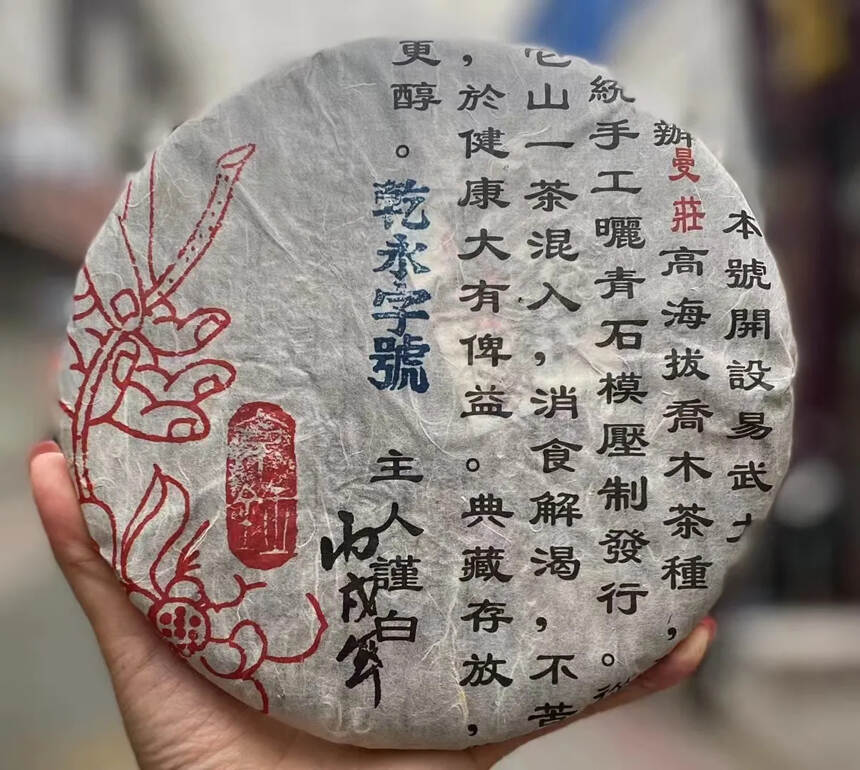 本號開設易武
辦曼莊高海拔喬木茶種，
統手工曬青石模壓制發行。
山一茶混入，消食解渴，不苦
，於健康大有俾益。典藏存放，
更醇。
乾永字號
主人謹白
丙戌年